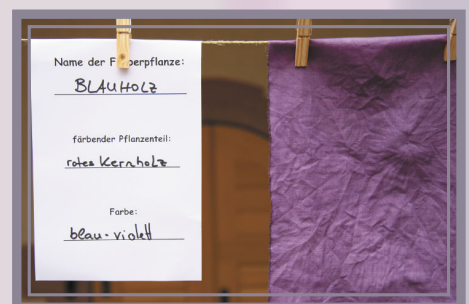 Name der Färberpflanze:
BLAUHOLZ
färbender Pflanzenteil:
rotes Kernholz
Farbe:
blau-violett